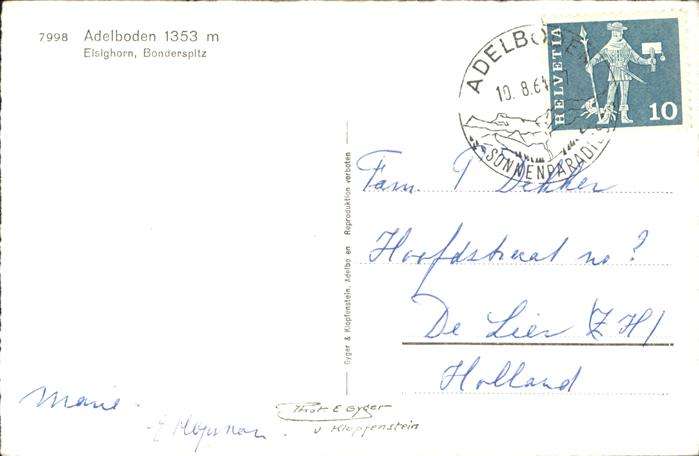 7998 Adelboden 1353 m
Elsighorn, Bonderspitz
ADELBODEN
10. 8.64
SONNENPARADIES
HELVETIA
10
Gyger & Klopfenstein, Adelboden Reproduktion verboten
Fam. T Dekker
Hoofdstraat no ?
De Lier Z H
Holland
Marie
Phot E Gyger
u Klopfenstein